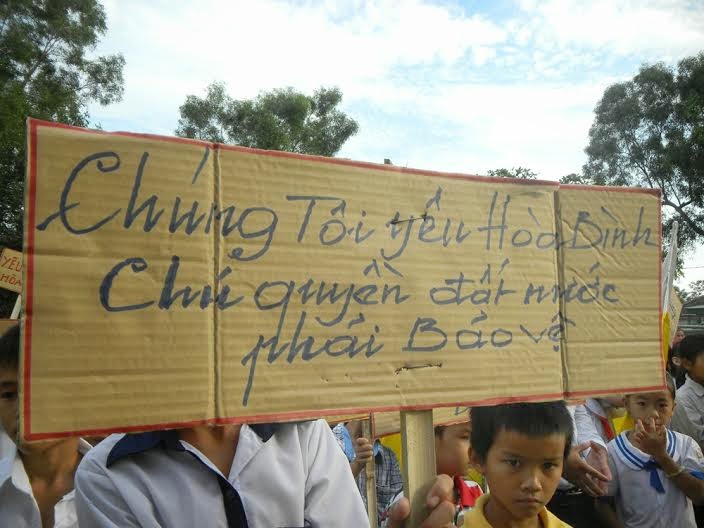 Chúng Tôi yêu Hòa Bình
Chủ quyền đất nước
phải Bảo vệ
YÊU
HÒA